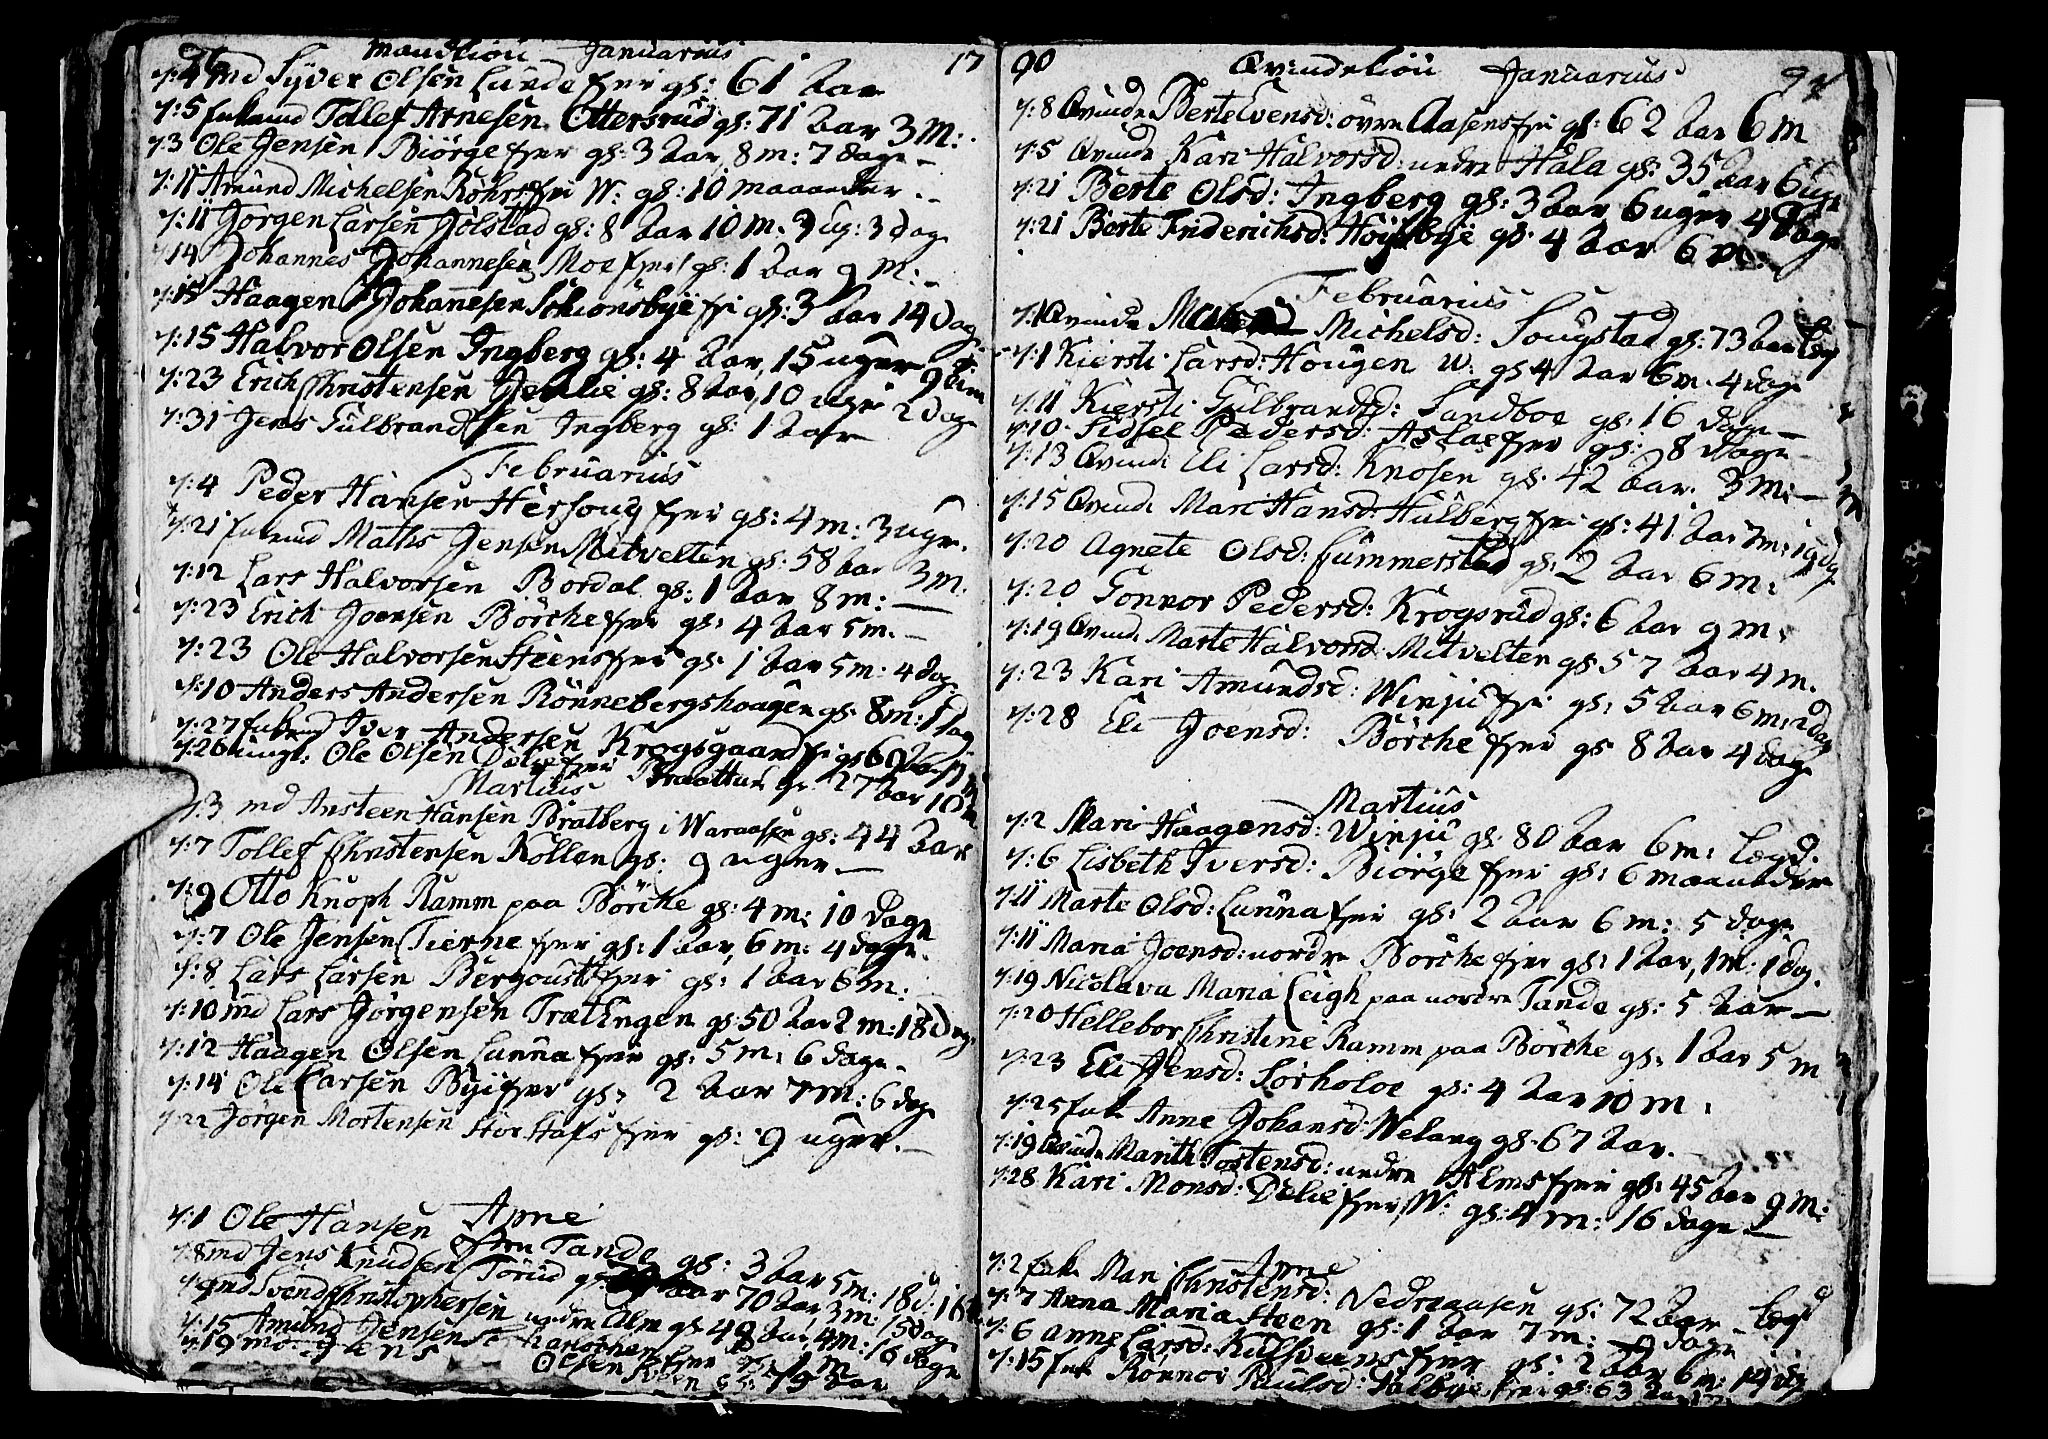 Mandkiön Januarius 17
d: 4 md Syver Olsen Lunde fier gs: 61 Aar
d: 5 Enkemd Tollef Arnesen Ottersrud gs: 71 Aar 3 M:
d: 3 Ole Jensen Biörge fier gs: 3 Aar 8 m: 7 dage
d: 11 Amund Michelsen Röhrs fier W: gs: 10 maaneder
d: 11 Jörgen Larsen Jölstad gs: 8 Aar 10 m. 3 ug: 3 dag
d: 14 Johannes Johannesen Moe fier gs: 1 Aar 9 M:
d: 15 Haagen Johannesen Schionsbye fr gs: 3 Aar 14 dag
d: 15 Halvor Olsen Ingberg gs: 4 Aar, 15 uger
d: 23 Erich Christensen gs: 8 Aar, 10 uger 2 dag
d: 31 Jens Gulbrandsen Ingberg gs: 1 Aar
Februarius
d: 4 Peder Hansen Hersoug fier gs: 4 m: 3 uger.
d: 21 Enkemd Maths Jensen Mitvelten gs: 58 Aar 3 M.
d: 12 Lars Halvorsen Bordal gs: 1 Aar 8 m:
d: 23 Erich Joensen Börche fier gs: 4 Aar 5 m.
d: 23 Ole Halvorsen Steens fier gs. 1 Aar 5 m: 4 dag
d: 10 Anders Andersen Rönnebergshaagen gs: 8 m: 1 dag
d: 27 Enkemd Iver Andersen Krogsgaard gs 60 Aar
d: 26 ungk: Ole Olsen fier Braattun gs 27 Aar 10 m
Martius
d: 3 md Ansteen Hansen Bratberg i Waraasen gs: 44 Aar
d: 7 Tollef Christensen Kollen gs: 9 uger
d: 9 Otto Knoph Ramm paa Börche gs: 4 m: 10 dage
d: 7 Ole Jensen Tierne fier gs: 1 Aar 6 m: 4 dage.
d: 8 Lars Larsen Bergoust fier gs: 1 Aar 6 m:
d: 10 md Lars Jörgensen Trætengen gs: 50 Aar 2 m: 18 dag.
d: 12 Haagen Olsen Lunna fier gs: 5 m: 6 dage.
d: 14 Ole Larsen Bye fier gs: 2 Aar 7 m: 6 dag
d: 22 Jörgen Mortensen Stor Hafs fier gs: 9 uger.
April
d: 1 Ole Hansen Tande gs: 3 Aar 5 m: 18 d:
d: 8 md Jens Knudsen Torud gs: 70 Aar 3 m:
d: 9 md Svend Christophersen nedre Alm gs 48 Aar, 4 m: 15 dag
d: 15 Amund Jensen fier gs: 1 m 16 dage
d: 19 md Jens Olsen gs: 79 Aar
90 Qvindekiön Januarius 91
d: 8 Qvinde Berte Evensd: övre Aasens fier gs: 62 Aar 6 m
d: 5 Qvinde Kari Halvorsd: nedre Hala gs: 35 Aar 6 uge
d: 21 Berte Olsd: Ingberg gs: 3 Aar 6 uger 4 dage
d: 21 Berte Friderichsd: Höyesbye gs. 4 Aar 6 m:
Februarius
d: 1 Qvinde Michelsd: Sougstad gs: 73 Aar Lægd
d: 1 Kiersti Larsd: Hougen W. gs 4 Aar 6 m. 4 dage
d: 11 Kiersti Gulbrandsd: Sandboe gs: 16 dage
d: 10 Sidsel Pedersd: Aslae fier gs: 8 dage
d: 13 Qvinde Eli Larsd: Knosen gs. 42 Aar. 3 M:
d: 15 Qvinde Mari Hansd: Hulberg fier gs: 41 Aar 7 m: 19 dg
d: 20 Agnete Olsd: Lummerstad gs: 2 Aar 6 m:
d: 20 Gonnor Pedersd: Krogsrud gs: 6 Aar 9 m.
d: 19 Qvinde Marte Halvorsd: Mitvelten gs: 57 Aar 4 m.
d: 23 Kari Amundsd: Winju fier gs: 5 Aar 6 m: 2 dag
d: 28 Eli Joensd: Börche fier gs 8 Aar 4 dage
Martius
d: 2 Mari Haagensd: Winju gs: 80 Aar 6 m: Lægd.
d: 6 Lisbeth Iversd: Biörge fier gs: 6 maaneder
d: 11 Marte Olsd: Lunna fier gs: 2 Aar 6 m: 5 dage
d: 11 Maria Joensd: nordre Börche fier gs: 1 Aar, 1 m. 1 dag.
d: 19 Nicolava Maria Leigh paa nordre Tande gs: 5 Aar
d: 20 Hellebor Christine Ramm paa Börche gs: 1 Aar 5 m
d: 23 Eli Jensd: Sörholoe gs: 4 Aar 10 m.
d: 25 Enke Anne Johansd: Welang gs. 67 Aar.
d: 19 Qvinde Marith Tostensd: nedre Alms fier gs: 45 Aar 9 m:
d: 28 Kari Monsd: Delie fier W: gs: 4 m: 16 dage
April
d: 2 Enke Mari Christensd: Nedreaasen gs: 72 Aar Lægd
d: 7 Anna Maria Steen gs: 1 Aar 7 m: dage
d: 6 Anne Larsd: Kulsveens fier gs: 2 Aar 6 m: 14 dg
d: 15 Enke Rönnov Paulsd: Valbye fier gs: 63 Aar